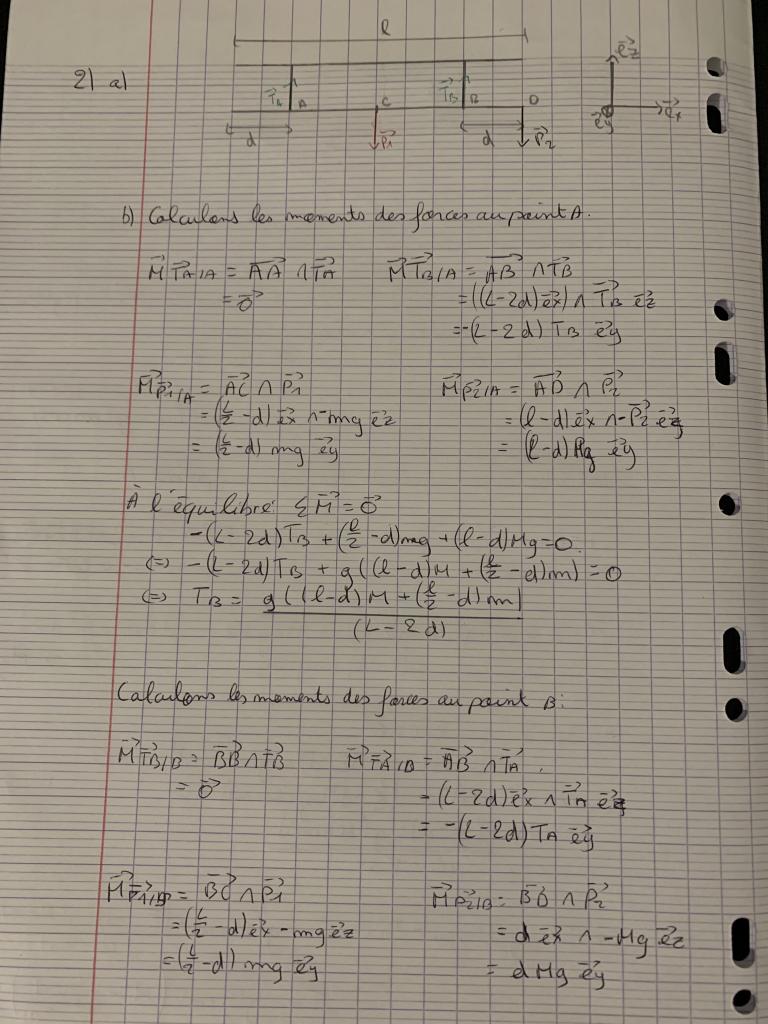 l
2) a)
T⃗A A C T⃗B B D
P⃗1 P⃗2
d d
e⃗z
e⃗y e⃗x
b) Calculons les moments des forces au point A.
M⃗ T⃗A/A = A⃗A ∧ T⃗A
= 0⃗
M⃗ T⃗B/A = A⃗B ∧ T⃗B
= ((L-2d) e⃗x) ∧ T⃗B e⃗z
= -(L-2d) TB e⃗y
M⃗ P⃗1/A = A⃗C ∧ P⃗1
= (L/2 - d) e⃗x ∧ -mg e⃗z
= (L/2 - d) mg e⃗y
M⃗ P⃗2/A = A⃗D ∧ P⃗2
= (l-d) e⃗x ∧ -P⃗2 e⃗z
= (l-d) Mg e⃗y
À l'équilibre: Σ M⃗ = 0⃗
-(L-2d) TB + (l/2 - d) mg + (l-d) Mg = 0
(=) -(L-2d) TB + g((l-d) M + (l/2 - d) m) = 0
(=) TB = g((l-d) M + (l/2 - d) m)
(L-2d)
Calculons les moments des forces au point B:
M⃗ T⃗B/B = B⃗B ∧ T⃗B
= 0⃗
M⃗ T⃗A/B = A⃗B ∧ T⃗A
= (L-2d) e⃗x ∧ T⃗A e⃗z
= -(L-2d) TA e⃗y
M⃗ P⃗1/B = B⃗C ∧ P⃗1
= (L/2 - d) e⃗x - mg e⃗z
= (l/2 - d) mg e⃗y
M⃗ P⃗2/B = B⃗D ∧ P⃗2
= d e⃗x ∧ -Mg e⃗z
= d Mg e⃗y